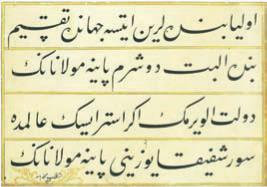 اولیا بنده لرین ایتسه جهانده تقسیم
بنده البت دوشرم پاینه مولانانك
دولت الویرمك اكر استر ایسك عالمده
سور شفیقا یوزینی پاینه مولانانك